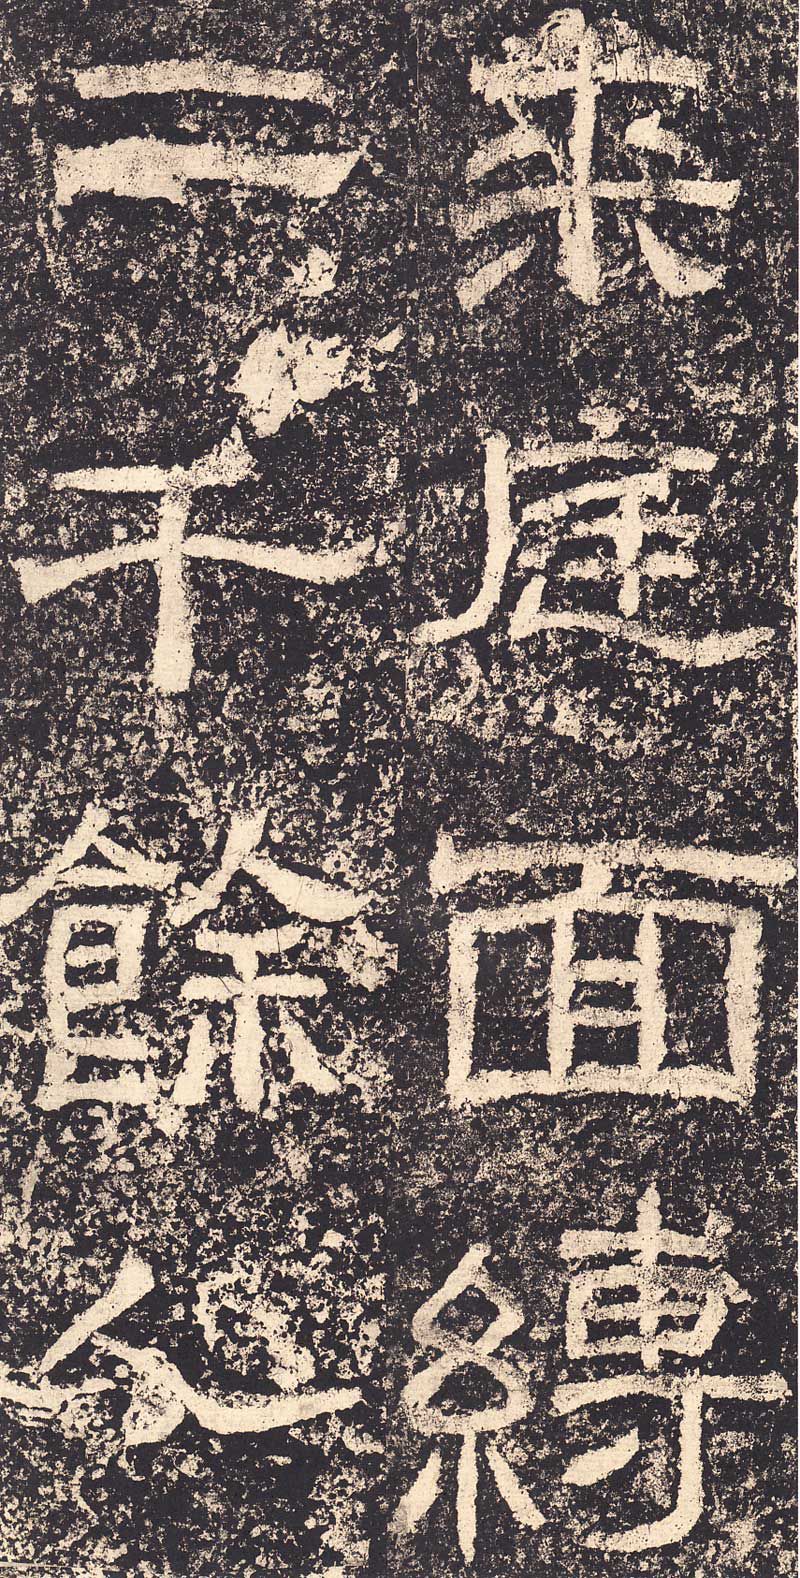 来庭面縛
二千餘人